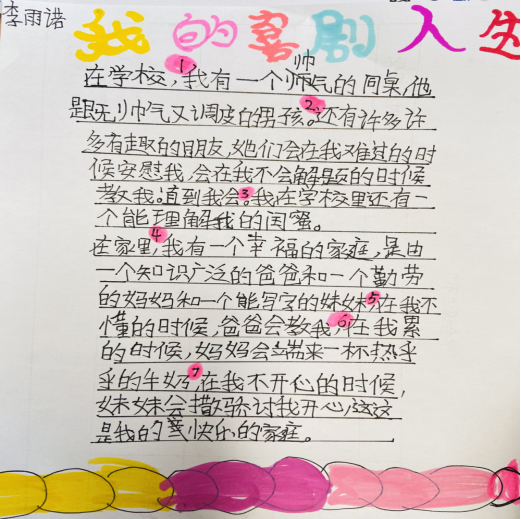 李雨诺
我的喜剧人生
帅
在学校,①我有一个帅气的同桌,他
是既帅气又调皮的男孩。②还有许多许
多有趣的朋友,她们会在我难过的时
候安慰我,会在我不会解题的时候
教我。直到我会。③我在学校里还有一
个能理解我的闺蜜。
④在家里,我有一个幸福的家庭,是由
一个知识广泛的爸爸和一个勤劳
的妈妈和一个能写字的妹妹,⑤在我不
懂的时候,爸爸会教我,⑥在我累
的时候,妈妈会端来一杯热乎
乎的牛奶,⑦在我不开心的时候,
妹妹会撒娇讨我开心,这
是我的快乐的家庭。